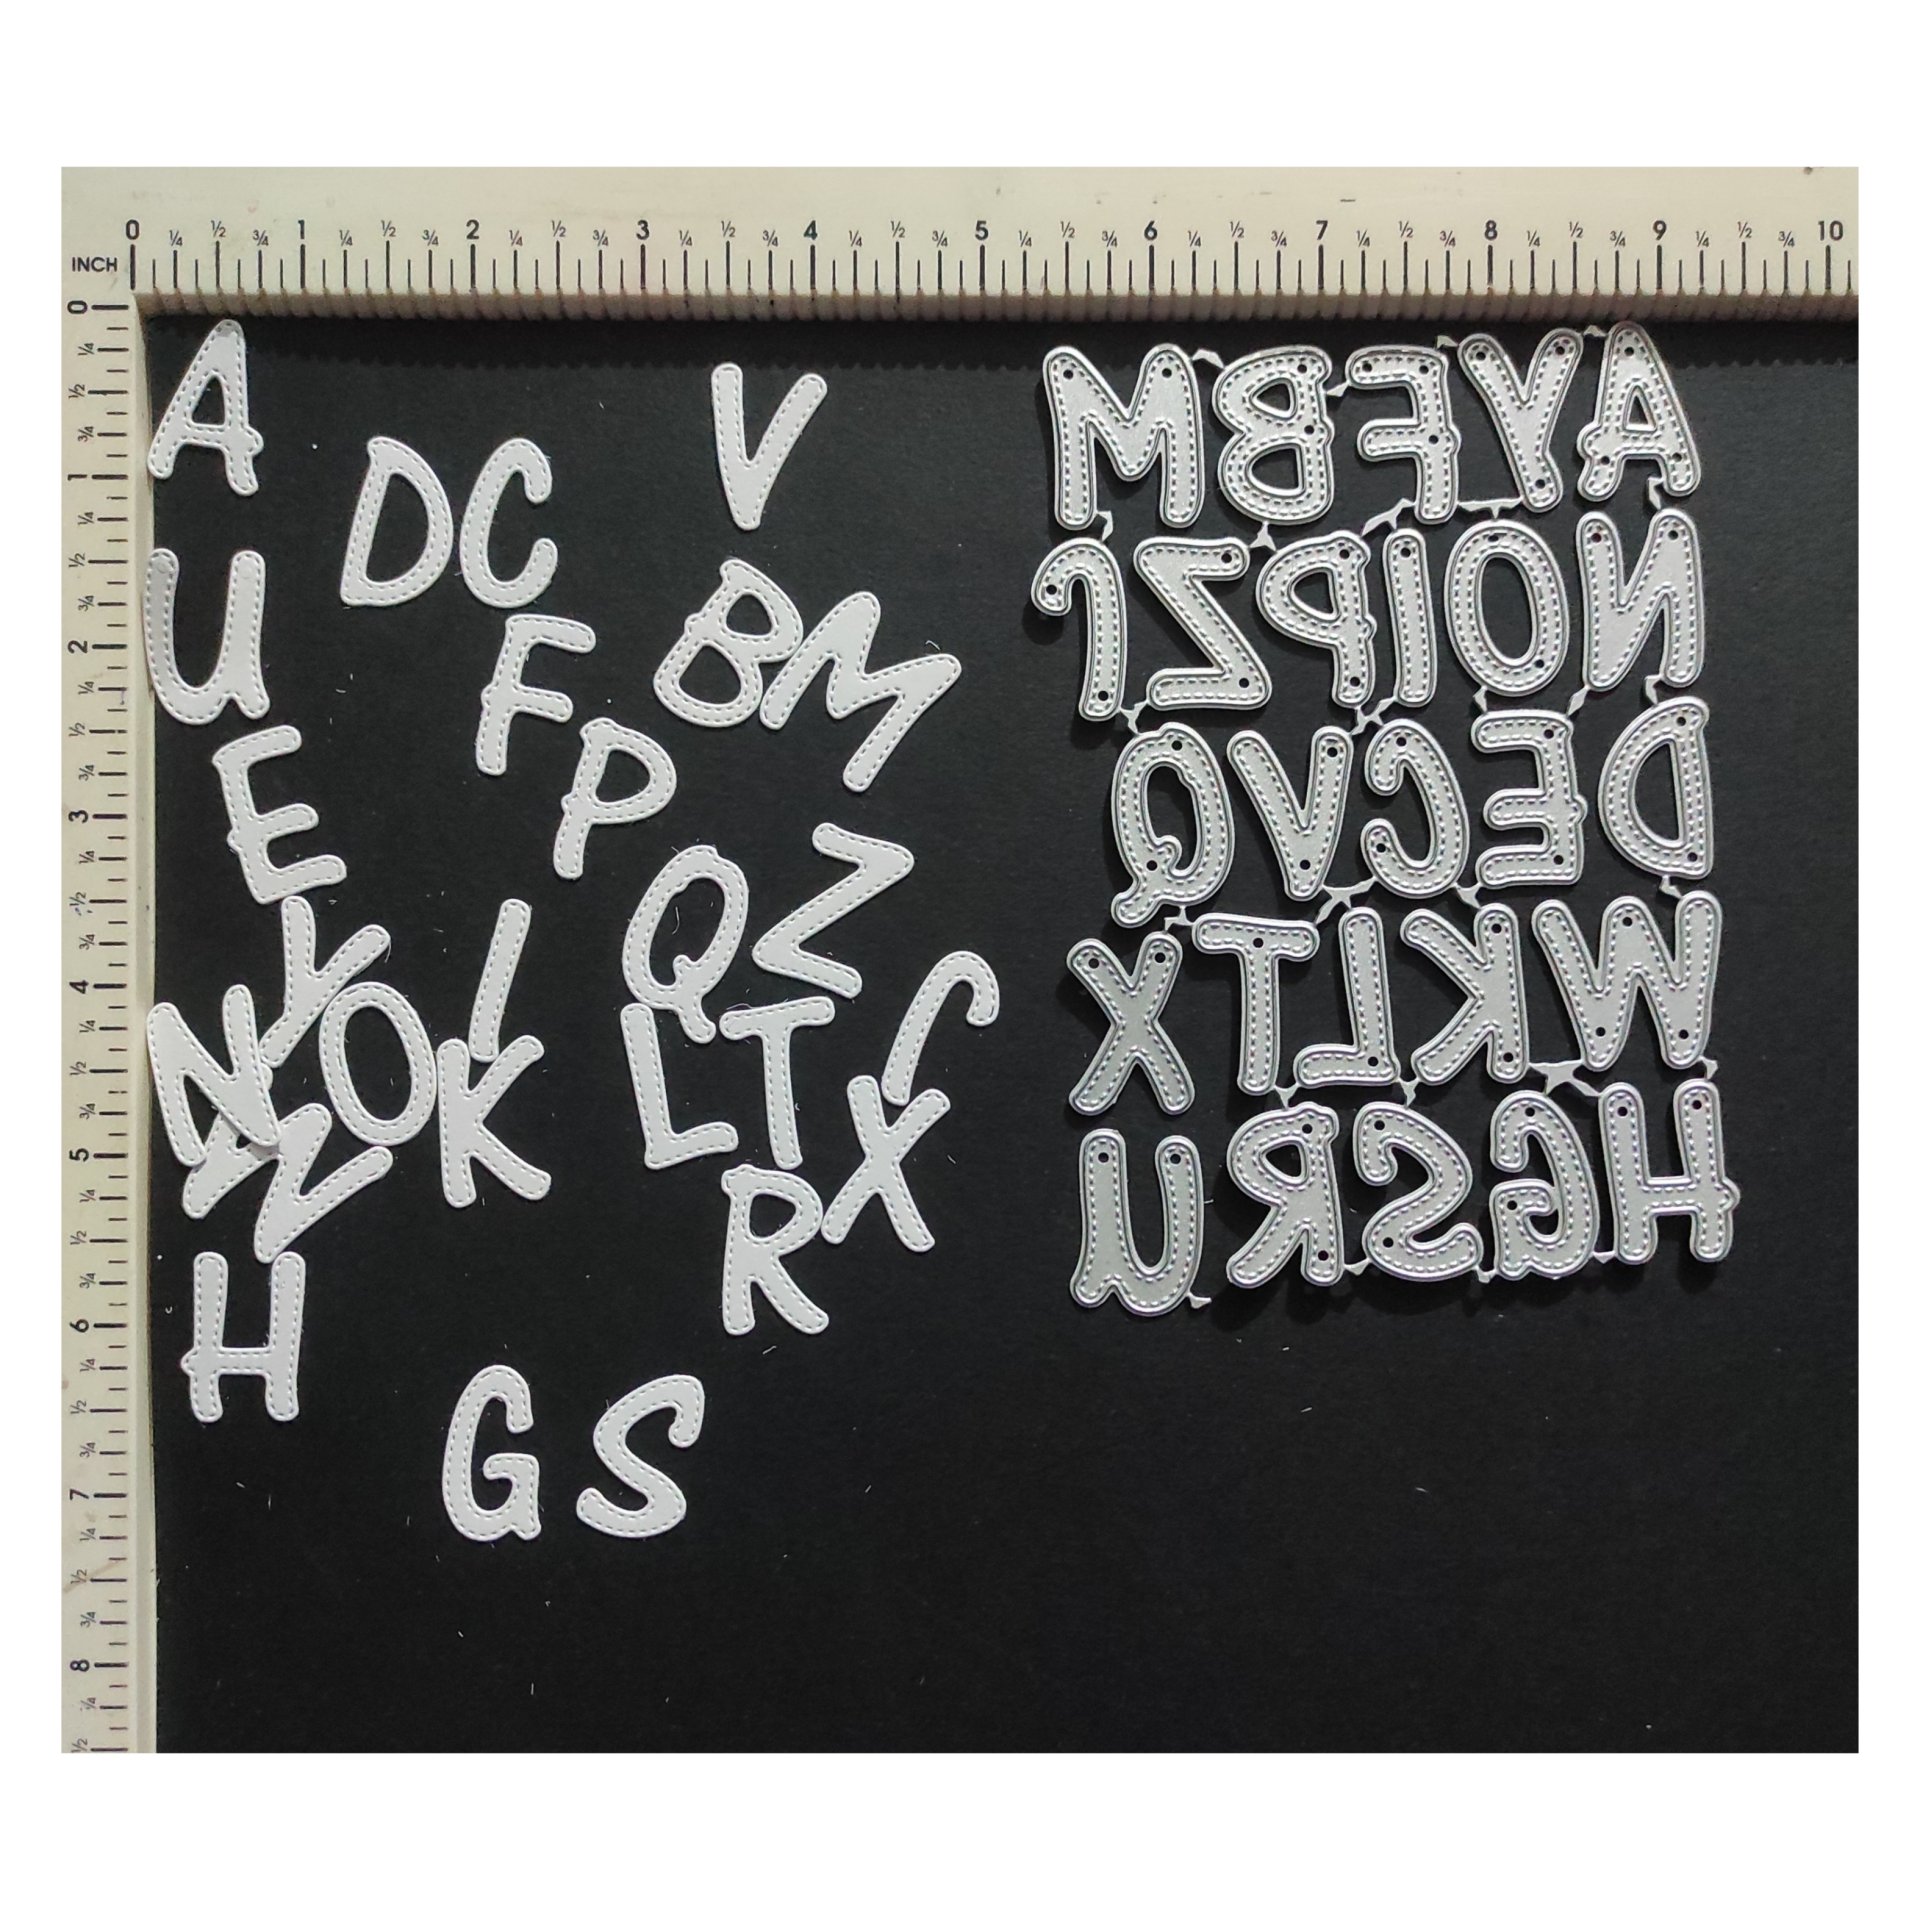 0 ¼ ½ ¾ 1 ¼ ½ ¾ 2 ¼ ½ ¾ 3 ¼ ½ ¾ 4 ¼ ½ ¾ 5 ¼ ½ ¾ 6 ¼ ½ ¾ 7 ¼ ½ ¾ 8 ¼ ½ ¾ 9 ¼ ½ ¾ 10
INCH
0 ¼ ½ ¾ 1 ¼ ½ ¾ 2 ¼ ½ ¾ 3 ¼ ½ ¾ 4 ¼ ½ ¾ 5 ¼ ½ ¾ 6 ¼ ½ ¾ 7 ¼ ½ ¾ 8 ¼ ½
A V
D C
U B M
F
E P
Q Z
Y I J
N O K L T
W X
R
H
G S
M B F Y A
J Z P I O N
Q V C E D
X T L K W
U R S G H